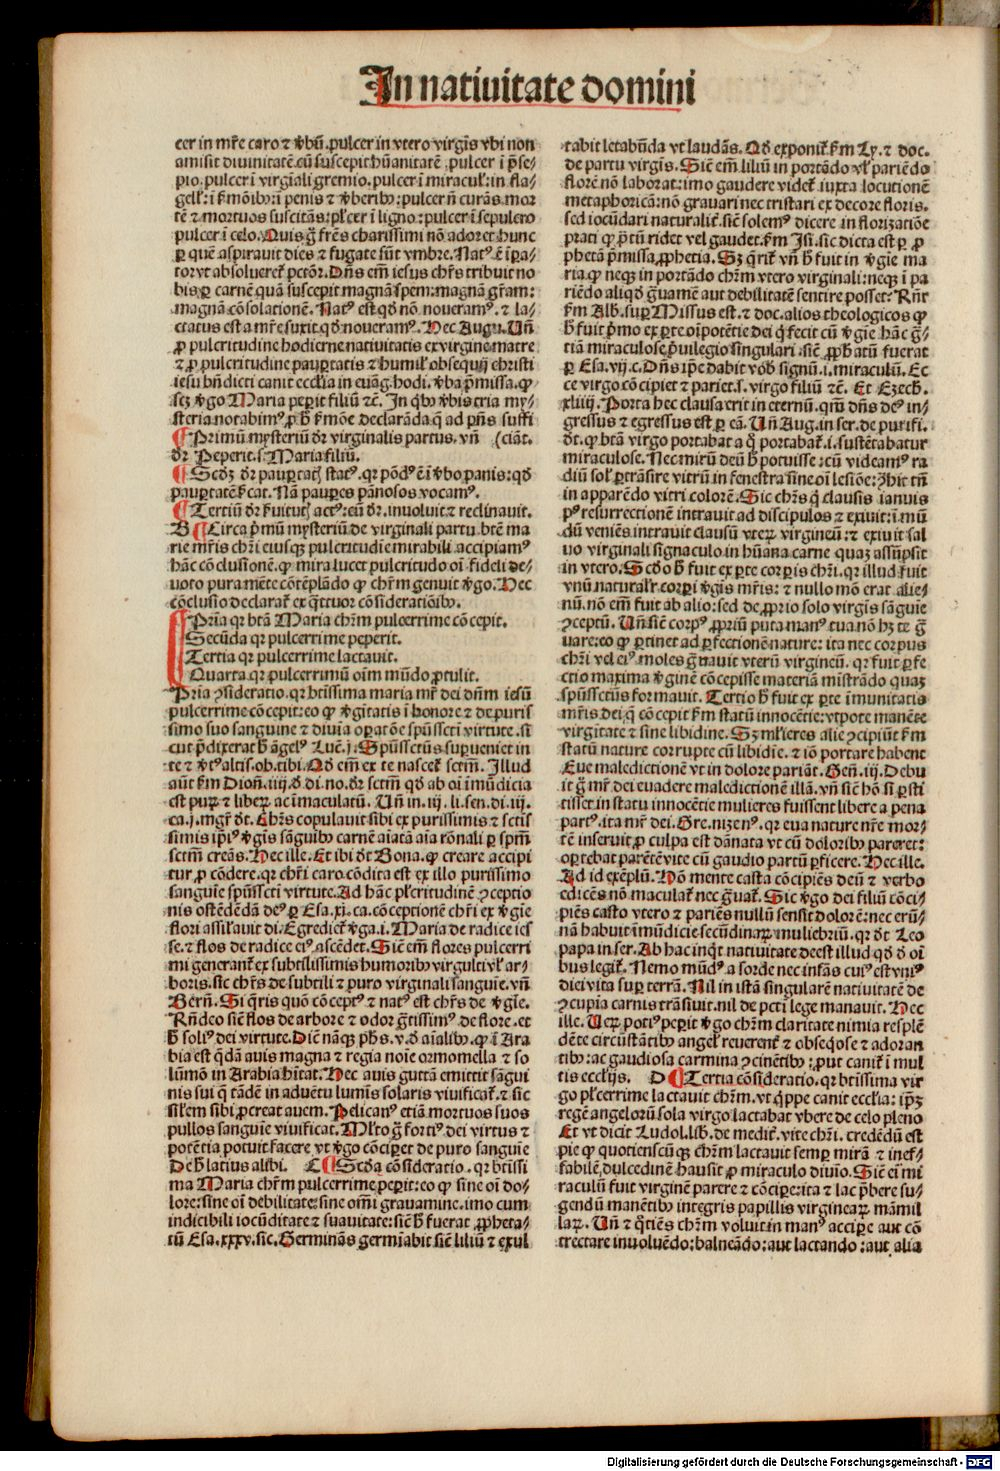 In natiuitate domini
cer in mr̄e caro ⁊ v̓bū .pulcer in vtero virgīs vbi non
amisit diuinitatē cū suscepit hūanitatē .pulcer ī p̄se-
pio.pulcer ī virgīali gremio.pulcer ī miracul̓:in fla-
gell̓:ī s̓mōib9:ī penis ⁊ v̓berib9:pulcer ī curās mor
tē ⁊ mortuos suscitās:pl̓cer ī ligno:pulcer ī sepulcro
pulcer ī celo.Quis g̊ fr̄es charissimi nō adoret hunc
ꝑ quē aspirauit dies ⁊ fugate sūt vmbre. Nat9 ē īꝑa-
tor vt absolueret̓ pctōr. Dn̄s em̄ iesus chr̄s tribuit no
bis ꝑ carnē quā suscepit magnā spem: magnā gr̄am:
magnā cōsolationē. Nat9 est qd̓ nō noueram9. ⁊ la-
ctatus est a mr̄e suxit qd̓ noueram9. Hec Augu. Un̄
ꝓ pulcritudine hodierne natiuitatis ex virgine matre
⁊ ꝓ pulcritudine pauꝑtatis ⁊ humil̓ obsequij christi
iesu bn̄dicti canit ecclīa in euāg.hodi. v̓ba p̄missa.ꝙ
scꝫ v̓go Maria peꝑit filiū ⁊c̄. In qb9 v̓bis tria my-
steria notabim9 ꝓ h̓ s̓mōe declarāda q̄ ad p̄ns suffi
¶ Primū mysteriū dr̄ virginalis partus. vn̄ (ciāt.
dr̄ Peperit.s.Maria filiū.
¶ Scd̓ꝫ dr̄ pauꝑtatꝭ stat9. qꝛ pōd9 ē ī v̓bo panis: qd̓
pauꝑtatē s̓cat. Nā pauꝑes pānosos vocam9.
¶ Tertiū dr̄ s̓uitutꝭ act9: cū dr̄. inuoluit ⁊ reclinauit.
B ¶ Circa p̓mū mysteriū de virginali partu. btē ma
rie mr̄is chr̄i eiusqꝫ pulcritudīe mirabili accipiam9
hāc cōclusionē.ꝙ mira lucet pulcritudo oī fideli de-
uoto pura mēte cōtēplādo ꝙ chr̄m genuit v̓go. Hec
cōclusio declarat̓ ex q̄ttuor cōsideratiōib9.
¶ Pr̄ia qꝛ btā Maria chr̄m pulcerrime cōcepit.
Secūda qꝛ pulcerrime peperit.
Tertia qꝛ pulcerrime lactauit.
Quarta.qꝛ pulcerrimū oīm mūdo ꝓtulit.
Pr̄ia ꝯsideratio.qꝛ btissima maria mr̄ dei dn̄m iesū
pulcerrime cōcepit:eo ꝙ v̓gītatis ī honore ⁊ de puris
simo suo sanguine ⁊ diuīa oꝑatōe spūssc̄ti virtute. si
cut p̄dixerat h̓ āgel9 Luc̄.j. Spūssctūs suꝑueniet in
te ⁊ v̓t9altis.ob.tibi. Qd̓ em̄ ex te nascet̓ sctm̄. Illud
aūt s̓m Dion̄.iiij.d̓ di.no.dr̄ sctm̄ qd̓ ab oī īmūdicia
est puꝝ ⁊ libeꝝ ac īmaculatū. Un̄ in.iij.li.sen.di.iij.
ca.j.mgr̄ dt̄. Chr̄s copulauit sibi ex purissimis ⁊ sctis
simis ip̄i9 v̓gīs sāguīb9 carnē aīatā aīa rōnali ꝑ spm̄
sctm̄ creās. Hec ille. Et ibi dt̄ Bona.ꝙ creare accipi
tur ꝓ cōdere.qꝛ chr̄i caro cōdita est ex illo purissimo
sanguīe spūssc̄ti virtute. Ad hāc pl̓critudinē ꝯceptio
nis ostēdēdā de9 ꝑ Esa.xi.ca.cōceptionē chr̄i ex v̓gīe
flori assil̓auit di.Egrediet̓ v̓ga.i. Maria de radice ies
se.⁊ flos de radice ei9 ascēdet. Sic̄ em̄ flores pulcerri
mi generant̓ ex subtilissimis humorib9 virgulti vl̓ ar-
boris.sic chr̄s de subtili ⁊ puro virginali sanguīe.vn̄
Bern̄. Si q̄ris quō cōcept9 ⁊ nat9 est chr̄s de v̓gīe.
Rn̄deo sic̄ flos de arbore ⁊ odor g̓tissim9 de flore. et
h̓ soli9 dei virtute. Dic̄ nāqꝫ ph̓s.v.d̓ aīalib9.ꝙ ī Ara
bia est q̄dā auis magna ⁊ regia noīe ormomella ⁊ so
lūmō in Arabia hītat. Hec auis guttā emittit sāgui
nis sui q̄ tādē in aduētu lumīs solaris viuificat̓.⁊ sic
sil̓em sibi ꝓcreat auem. Pelican9 etiā mortuos suos
pullos sanguīe viuificat. Ml̓to g̊ forti9 dei virtus ⁊
potētia potuit facere vt v̓go cōciꝑet de puro sanguīe
De h̓ latius alibi. C ¶ Scd̓a cōsideratio.qꝛ btissi
ma Maria chr̄m pulcerrime peꝑit:eo ꝙ sine oī do-
lore:sine oī debilitate:sine om̄i grauamine.imo cum
indicibili iocūditate ⁊ suauitate:sic̄ h̓ fuerat ꝓpheta-
tū Esa.xxxv.sic. Germināns germīabit sic̄ liliū ⁊ exul
tabit letabūda vt laudās. Qd̓ exponit̓ s̓m Ly.⁊ doc.
de partu virgīs. Sic̄ em̄ liliū in portādo vl̓ pariēdo
florē nō laborat:imo gaudere videt̓ iuxta locutionē
metaphoricā:nō grauari nec tristari ex decore floris.
sed iocūdari naturalit̓.sic̄ solem9 dicere in florizatiōe
prati ꝙ p̄tū ridet vel gaudet.s̓m Isi. sic dicta est ꝑ ꝓ
phetā p̄missa ꝓphetia. Sꝫ q̄rit̓ vn̄ h̓ fuit in v̓gīe ma
ria.ꝙ neqꝫ in portādo chr̄m vtero virginali:neqꝫ ī pa
riēdo aliqd̓ g̓uamē aut debilitatē sentire posset: Rn̄r̄
s̓m Alb̓.suꝑ Missus est.⁊ doc.alios theologicos ꝙ
h̓ fuit p̓mo ex ꝑte oīpotētie dei q̓ fecit cū v̓gīe hāc g̓-
tiā miraculose p̓uilegio singulari.sic̄ ꝓph̓atū fuerat
ꝑ Esa.vij.c. Dn̄s ip̄e dabit vob̓ signū.i.miraculū. Ec
ce virgo cōcipiet ⁊ pariet.s.virgo filiū ⁊c̄. Et Ezech̓.
xliiij. Porta hec clausa erit in eternū.qm̄ dn̄s de9 in-
gressus ⁊ egressus est ꝑ eā. Un̄ Aug.in ser.de purifi.
dt̄.ꝙ btā virgo portabat a q̊ portabat̓.i.sustētabatur
miraculose. Nec mirū deū h̓ potuisse:cū videam9 ra
diū sol̓ ꝑtrāsire vitrū in fenestra sine oī lesiōe:⁊hic tn̄
in apparēdo vitri colorē. Sic chr̄s q̓ clausis ianuis
p9 resurrectionē intrauit ad discipulos ⁊ exiuit: ī mū
dū veniēs intrauit clausū vteꝝ virgineū:⁊ exiuit sal
uo virginali signaculo in hūana carne quaꝫ assūpsit
in vtero. Scd̓o h̓ fuit ex ꝑte corꝑis chr̄i.qꝛ illud fuit
vnū naturalr̓.corꝑi v̓gīs mr̄is:⁊ nullo mō erat alie-
nū.nō em̄ fuit ab alio:sed de ꝓprio solo virgīs sāguīe
ꝯceptū. Un̄ sic̄ corp9 ꝓpriū puta man9 tua nō hꝫ te g̓
uare:eo ꝙ ꝑtinet ad ꝑfectionē nature: ita nec corpus
chr̄i vel ei9 moles g̓nauit vterū virgineū. qꝛ fuit ꝑfe
ctio maxima v̓ginē cōcepisse materiā mīstrādo quaꝫ
spūssctūs formauit. Tertio h̓ fuit ex ꝑte īmunitatis
mr̄is dei.q̄ cōcepit s̓m statū innocētie:vtpote manēte
virgītate ⁊ sine libidine. Sꝫ ml̓ieres alie ꝯcipiūt s̓m
statū nature corrupte cū libidīe.⁊ iō portare habent
Eue maledictionē vt in dolore pariāt. Gen̄.iij. Debu
it g̊ mr̄ dei euadere maledictionē illā.vn̄ sic̄ hō si ꝑsti
tisset in statu innocētie mulieres fuissent libere a pena
part9.ita mr̄ dei. Gre.nizen9.qꝛ eua nature nr̄e mor-
tē inseruit.ꝓ culpa est dānata vt cū dolorib9 pareret:
oꝑtebat parētē vite cū gaudio partū ꝑficere. Hec ille.
Ad id exēplū. Nō mente casta cōcipiēs deū ⁊ verbo
edicēs nō maculat̓ nec g̓uat̓. Sic v̓go dei filiū cōci-
piēs casto vtero ⁊ pariēs nullū sensit dolorē:nec erū-
nā habuit īmūdicie secūdinaꝝ muliebriū.qꝛ dt̄ Leo
papa in ser. Ab hac inqt̓ natiuitate deest illud qd̓ d̓ oī
bus legit̓. Nemo mūd9 a sorde nec infās cui9 est vni9
diei vita suꝑ terrā. Nil in istā singularē natiuitatē de
ꝯcupīa carnis trāsiuit.nil de pcti lege manauit. Hec
ille. Ueꝝ poti9 peꝑit v̓go chr̄m claritate nimia resplē
dēte circūstātib9 angel̓ reuerent̓ ⁊ obseq̓ose ⁊ adoran
tib9:ac gaudiosa carmina ꝯcinētib9:ꝓut canit̓ ī mul
tis ecclījs. D ¶ Tertia cōsideratio.qꝛ btissima vir
go pl̓cerrime lactauit chr̄m.vt q̓ppe canit ecclīa: ip̄ꝫ
regē angeloꝝ sola virgo lactabat vbere de celo pleno
Et vt dicit Ludol.lib̓.de medit̓.vite chr̄i.credēdū est
pie ꝙ quotienscūqꝫ chr̄m lactauit semꝑ mirā ⁊ inef-
fabilē dulcedinē hausit ꝓ miraculo diuīo. Sic̄ eī mi
raculū fuit virginē parere ⁊ cōciꝑe:ita ⁊ lac p̄bere su-
gendū manētib9 integris papillis virgineaꝝ māmil
laꝝ. Un̄ ⁊ q̓tiēs chr̄m voluit in man9 acciꝑe aut cō
trectare inuoluēdo:balneādo:aut lactando:aut alia
Digitalisierung gefördert durch die Deutsche Forschungsgemeinschaft - DFG